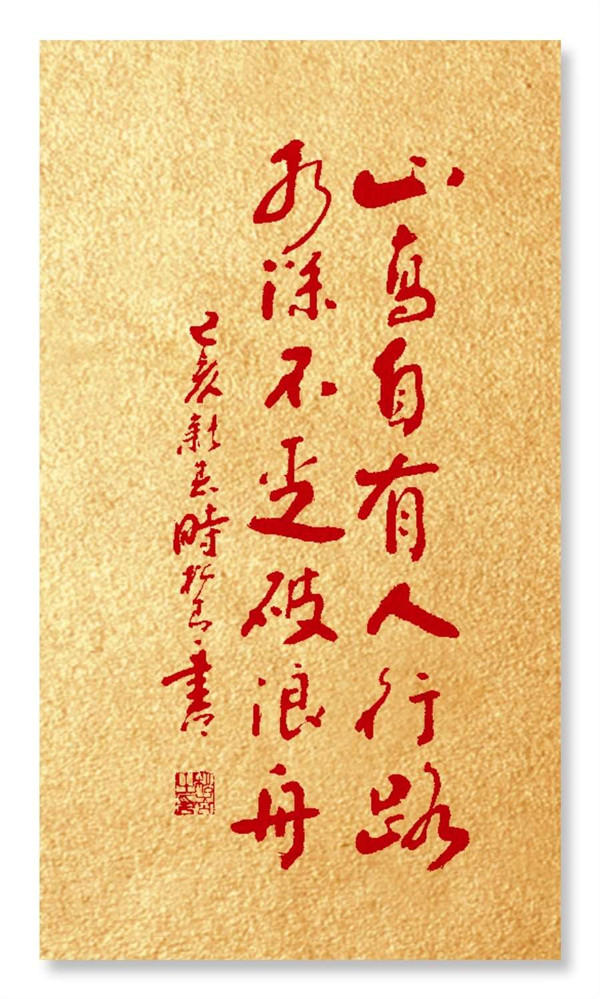 山高自有人行路
水深不乏破浪舟
己亥新春時於書